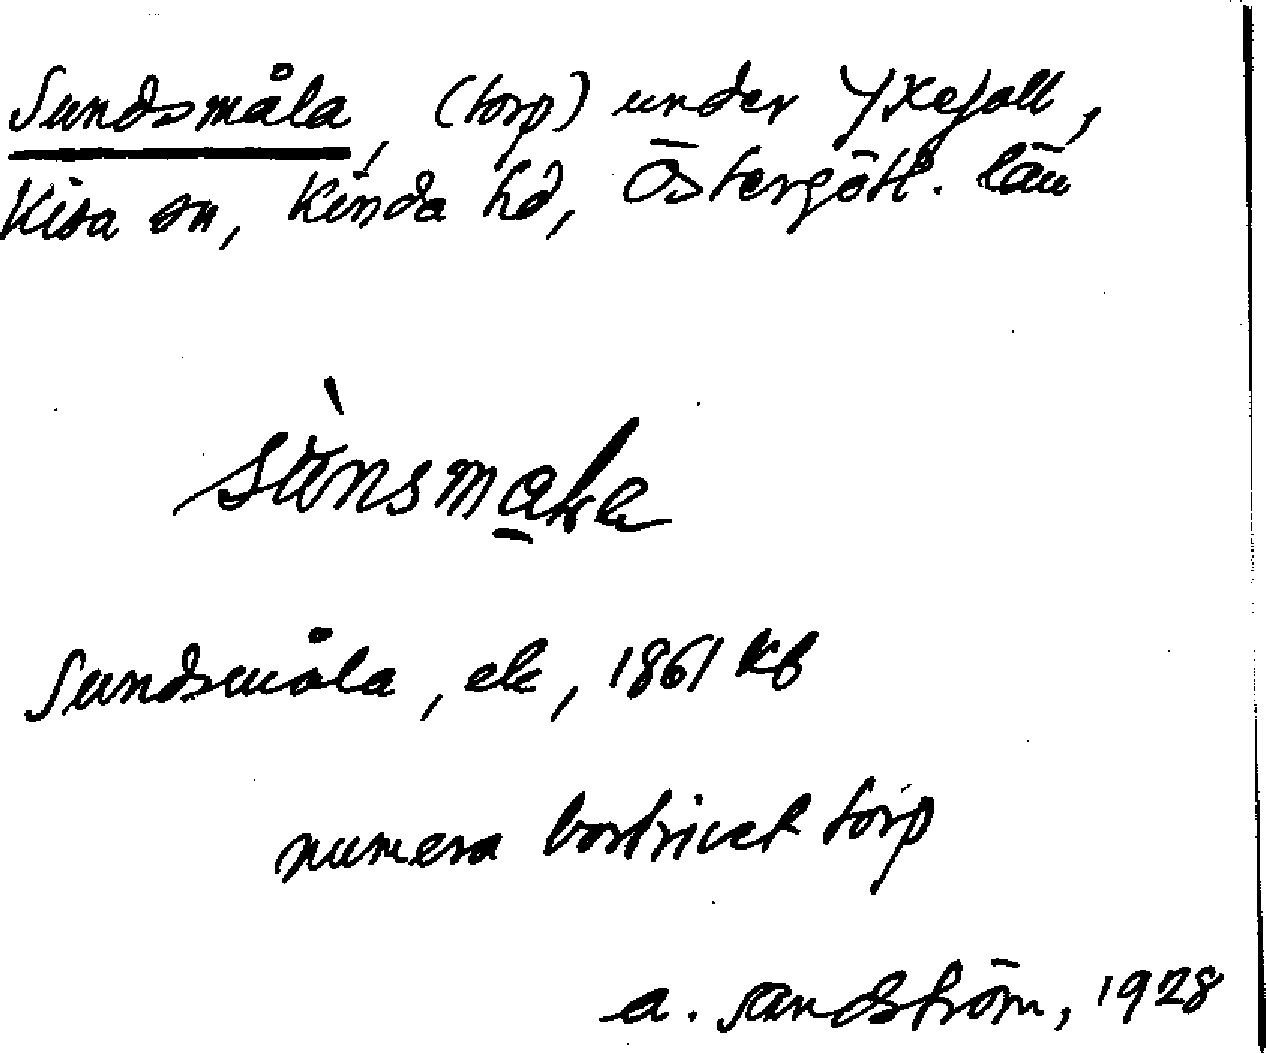 Sundsmåla, (torp) under Yxefall,
Kisa sn, Kinda hd, Östergötl. län
sùnsmåla
Sundsmåla, ek, 1861 Kb
numera bortrivet torp
A. Sandström, 1928